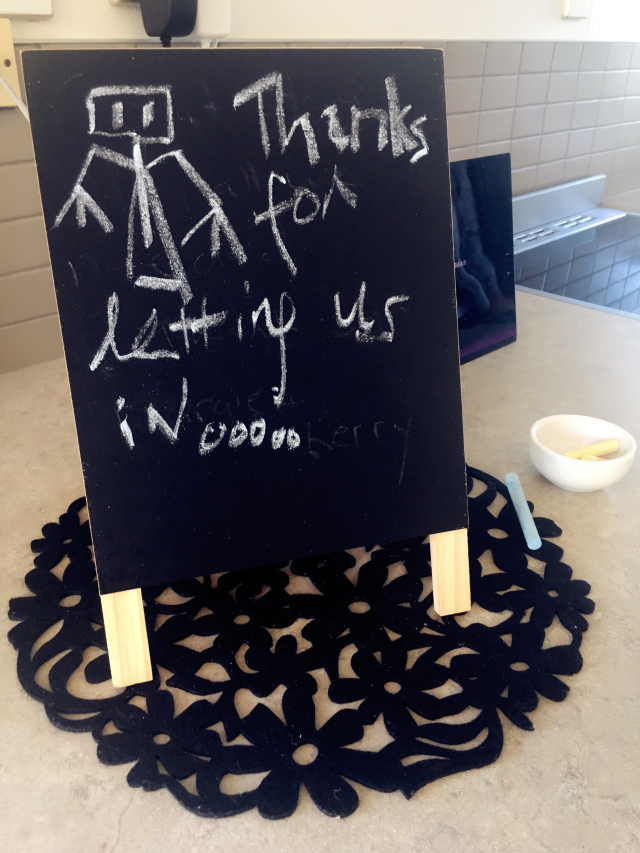 Thanks
for
letting us
iN ooooo